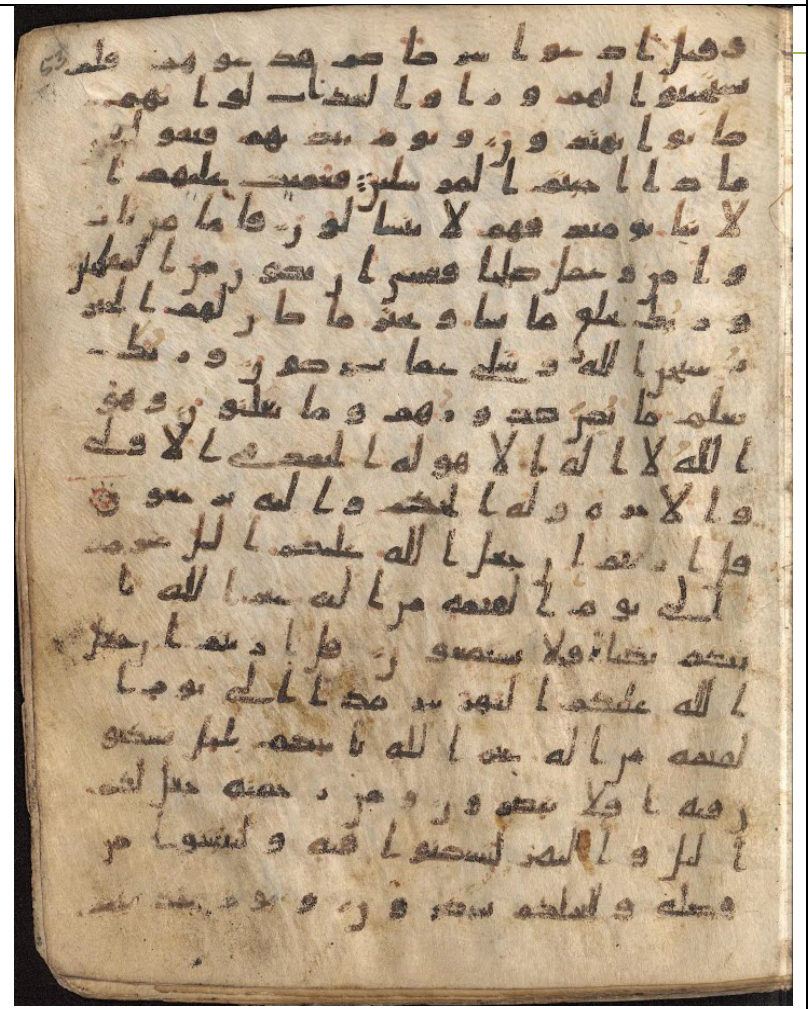 53
وقيل ادعوا شركاكم فدعوهم فلم
يستجيبوا لهم وراوا العذاب لو انهم
كانوا يهتدون ويوم يناديهم فيقول
ماذا اجبتم المرسلين فعميت عليهم ا
لانبا يومئذ فهم لا يتسالون فاما من تاب
وامن وعمل صلحا فعسى ان يكون من المفلحين
وربك يخلق ما يشا ويختر ما كان لهم الخير
ه سبحن الله وتعلى عما يشركون وربك
يعلم ما تكن صدورهم وما يعلنون وهو
الله لا اله الا هو له الحمد في الاولى
والاخره وله الحكم واليه ترجعون
قل اريتم ان جعل الله عليكم اليل سرمد
ا الى يوم القيمه من اله غير الله يا
تيكم بضياء افلا تسمعون قل اريتم ان جعل
الله عليكم النهر سرمدا الى يوم ا
لقيمه من اله غير الله ياتيكم بليل تسكنو
ن فيه افلا تبصرون ومن رحمته جعل لكم
اليل والنهر لتسكنوا فيه ولتبتغوا من
فضله ولعلكم تشكرون ويوم يناديهم